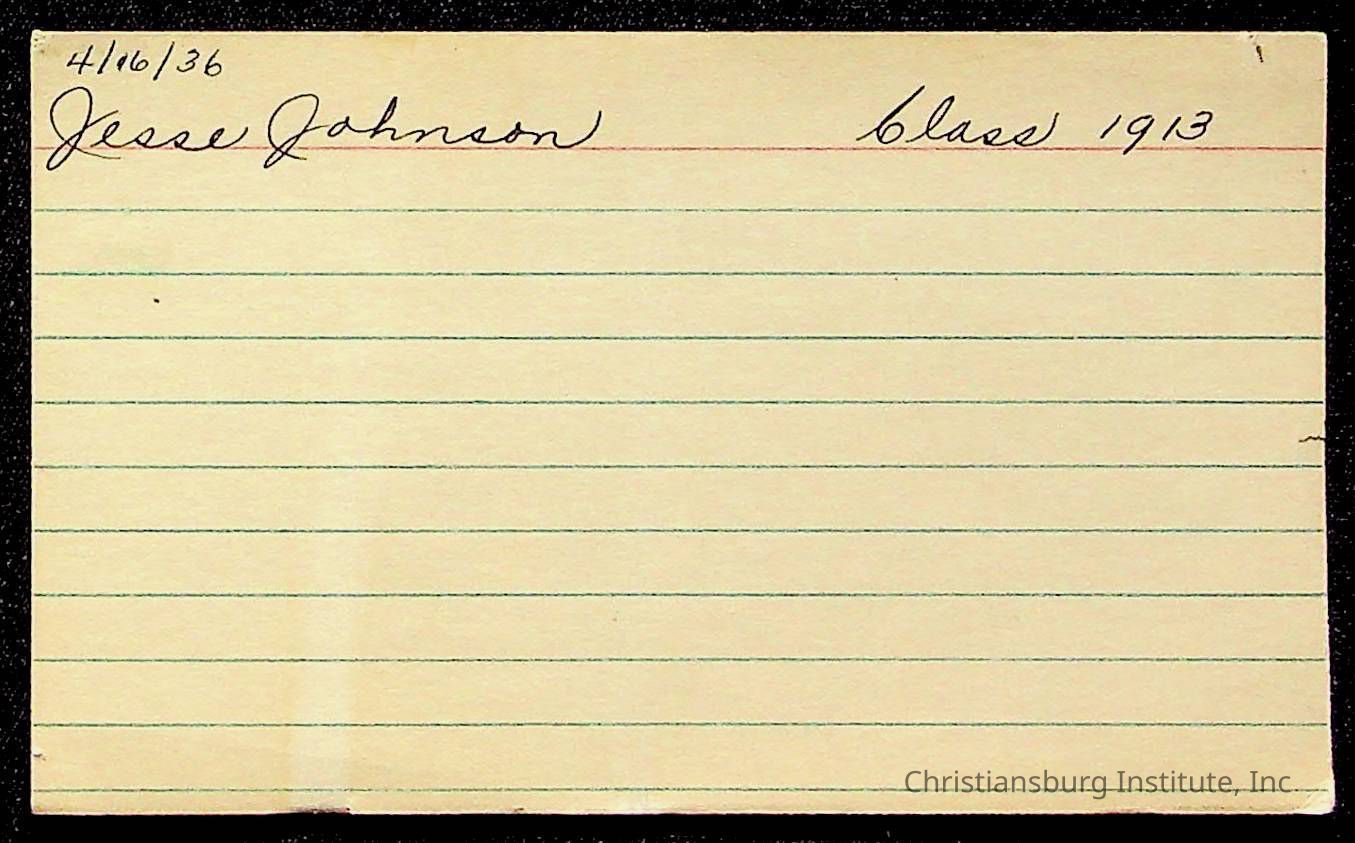 4/16/36
Jesse Johnson Class 1913
Christiansburg Institute, Inc